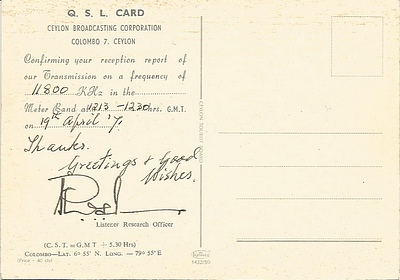 Q. S. L. CARD
CEYLON BROADCASTING CORPORATION
COLOMBO 7. CEYLON
Confirming your reception report of
our Transmission on a frequency of
11800 KHz in the
Meter Band at 1213 - 1230 hrs. G.M.T.
on 19th April '7
Thanks.
Greetings & Good
Wishes.
Listener Research Officer
(C. S. T. = G.M T + 5.30 Hrs)
COLOMBO—LAT. 6° 55' N. LONG. — 79° 55' E
CEYLON TOURIST BOARD